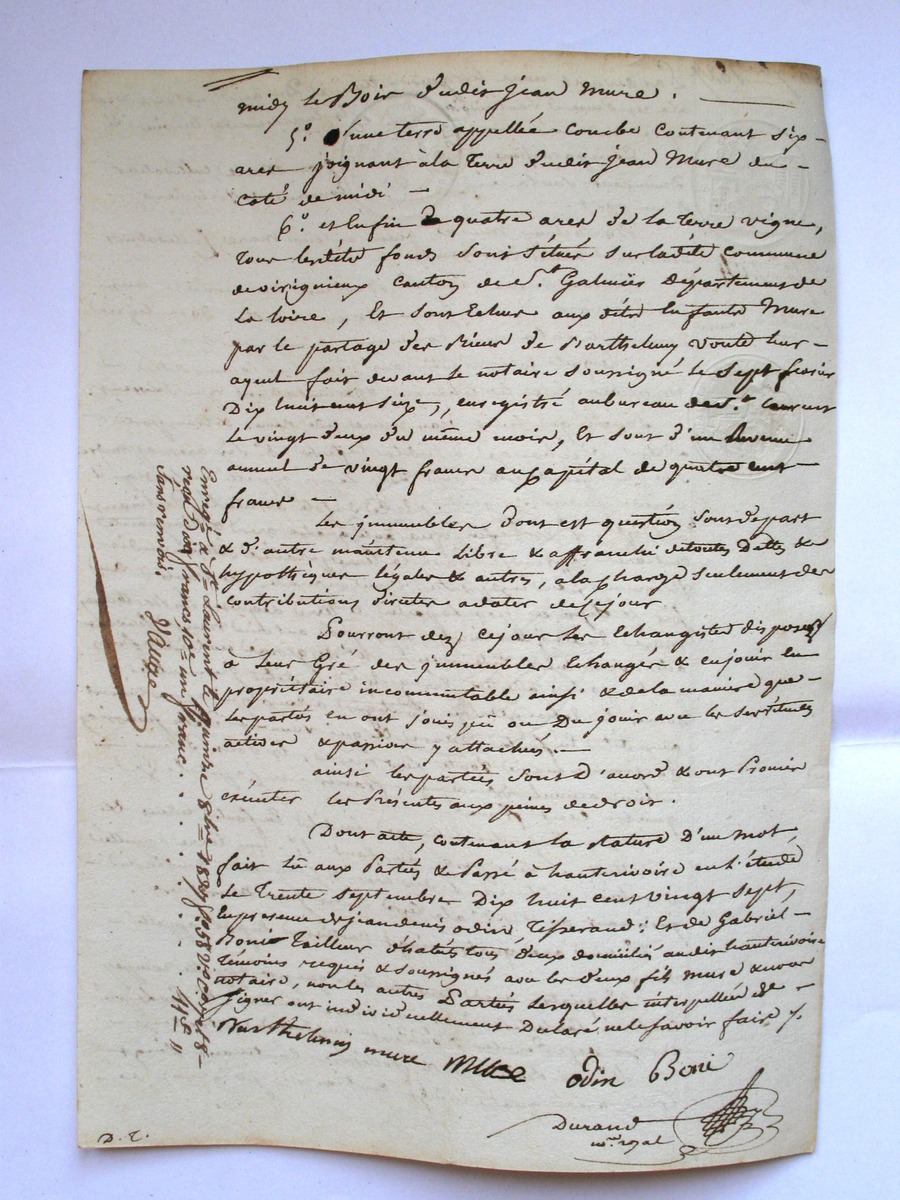 midy le Bois dudit jean Mure.
5.° d'une terre appellée Combe contenant six
ares joignant à la terre dudit jean Mure du
coté de midi
6.° et Enfin de quatre ares de la terre vigne,
tous lesdits fonds sont situés sur ladite commune
de virignieux canton de S.t Galmier Département de
La Loire, Et sont Echus aux dits Enfants Mure
par le partage des Biens de Barthelemy
ayent fait devant le notaire soussigné le sept
Dix huit cent, enregistré au bureau de S.t Laurent
le vingt deux du même mois, Et sont d'un Revenu
annuel de vingt francs au capital de quatre cent
francs
Les immeubles dont est question sont de part
& d'autre maintenu Libre & affranchi de toutes Dettes &
hypothèques légales & autres, a la charge seulement des
contributions directes a dater de ce jour
Pourront dez ce jour Les Echangistes disposer
à leur Gré des immeubles Echangés & en jouir En
propriétaire incommutable ainsi & de la maniere que
les partiés en ont jouis pû ou Du jouir avec les servitudes
actives & passives y attachées.
ainsi les partiés sont d'accord & ont Promis
éxécuter les Présentes aux peines de droit.
Dont acte, contenant la rature d'un mot,
fait lû aux Partiés & Passé à hauterivoire en l'étude
Le Trente septembre Dix huit cent vingt sept,
En présence de jean denis odin Tisserand: Et de Gabriel
Boni Tailleur d'habits tous deux domiciliés audit hauterivoire
Témoins requis & soussignés avec les deux fils mure & nous
notaire, non les autres Partiés lesquelles interpellées de
signer ont individuellement Déclaré ne le savoir faire
Barthelemy mure Mure odin Boni
Durand
no.re royal
D. E.
Enreg.é à S.t Laurent le premier 8.bre 1827 f.o 58 v.o C.es 1 & 8
reçu francs, 10.e un franc.
sans renvoi.